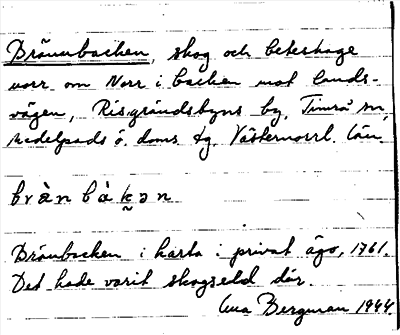 Brännbacken, skog och beteshage
norr om Norr i backen mot lands-
vägen, Risgrändsbyns by, Timrå sn,
Medelpads ö. doms. tg. Västernorrl. län.
bràn bàkən
Brånbacken i karta i privat ägo, 1761.
Det hade varit skogseld där.
Bergman 1944